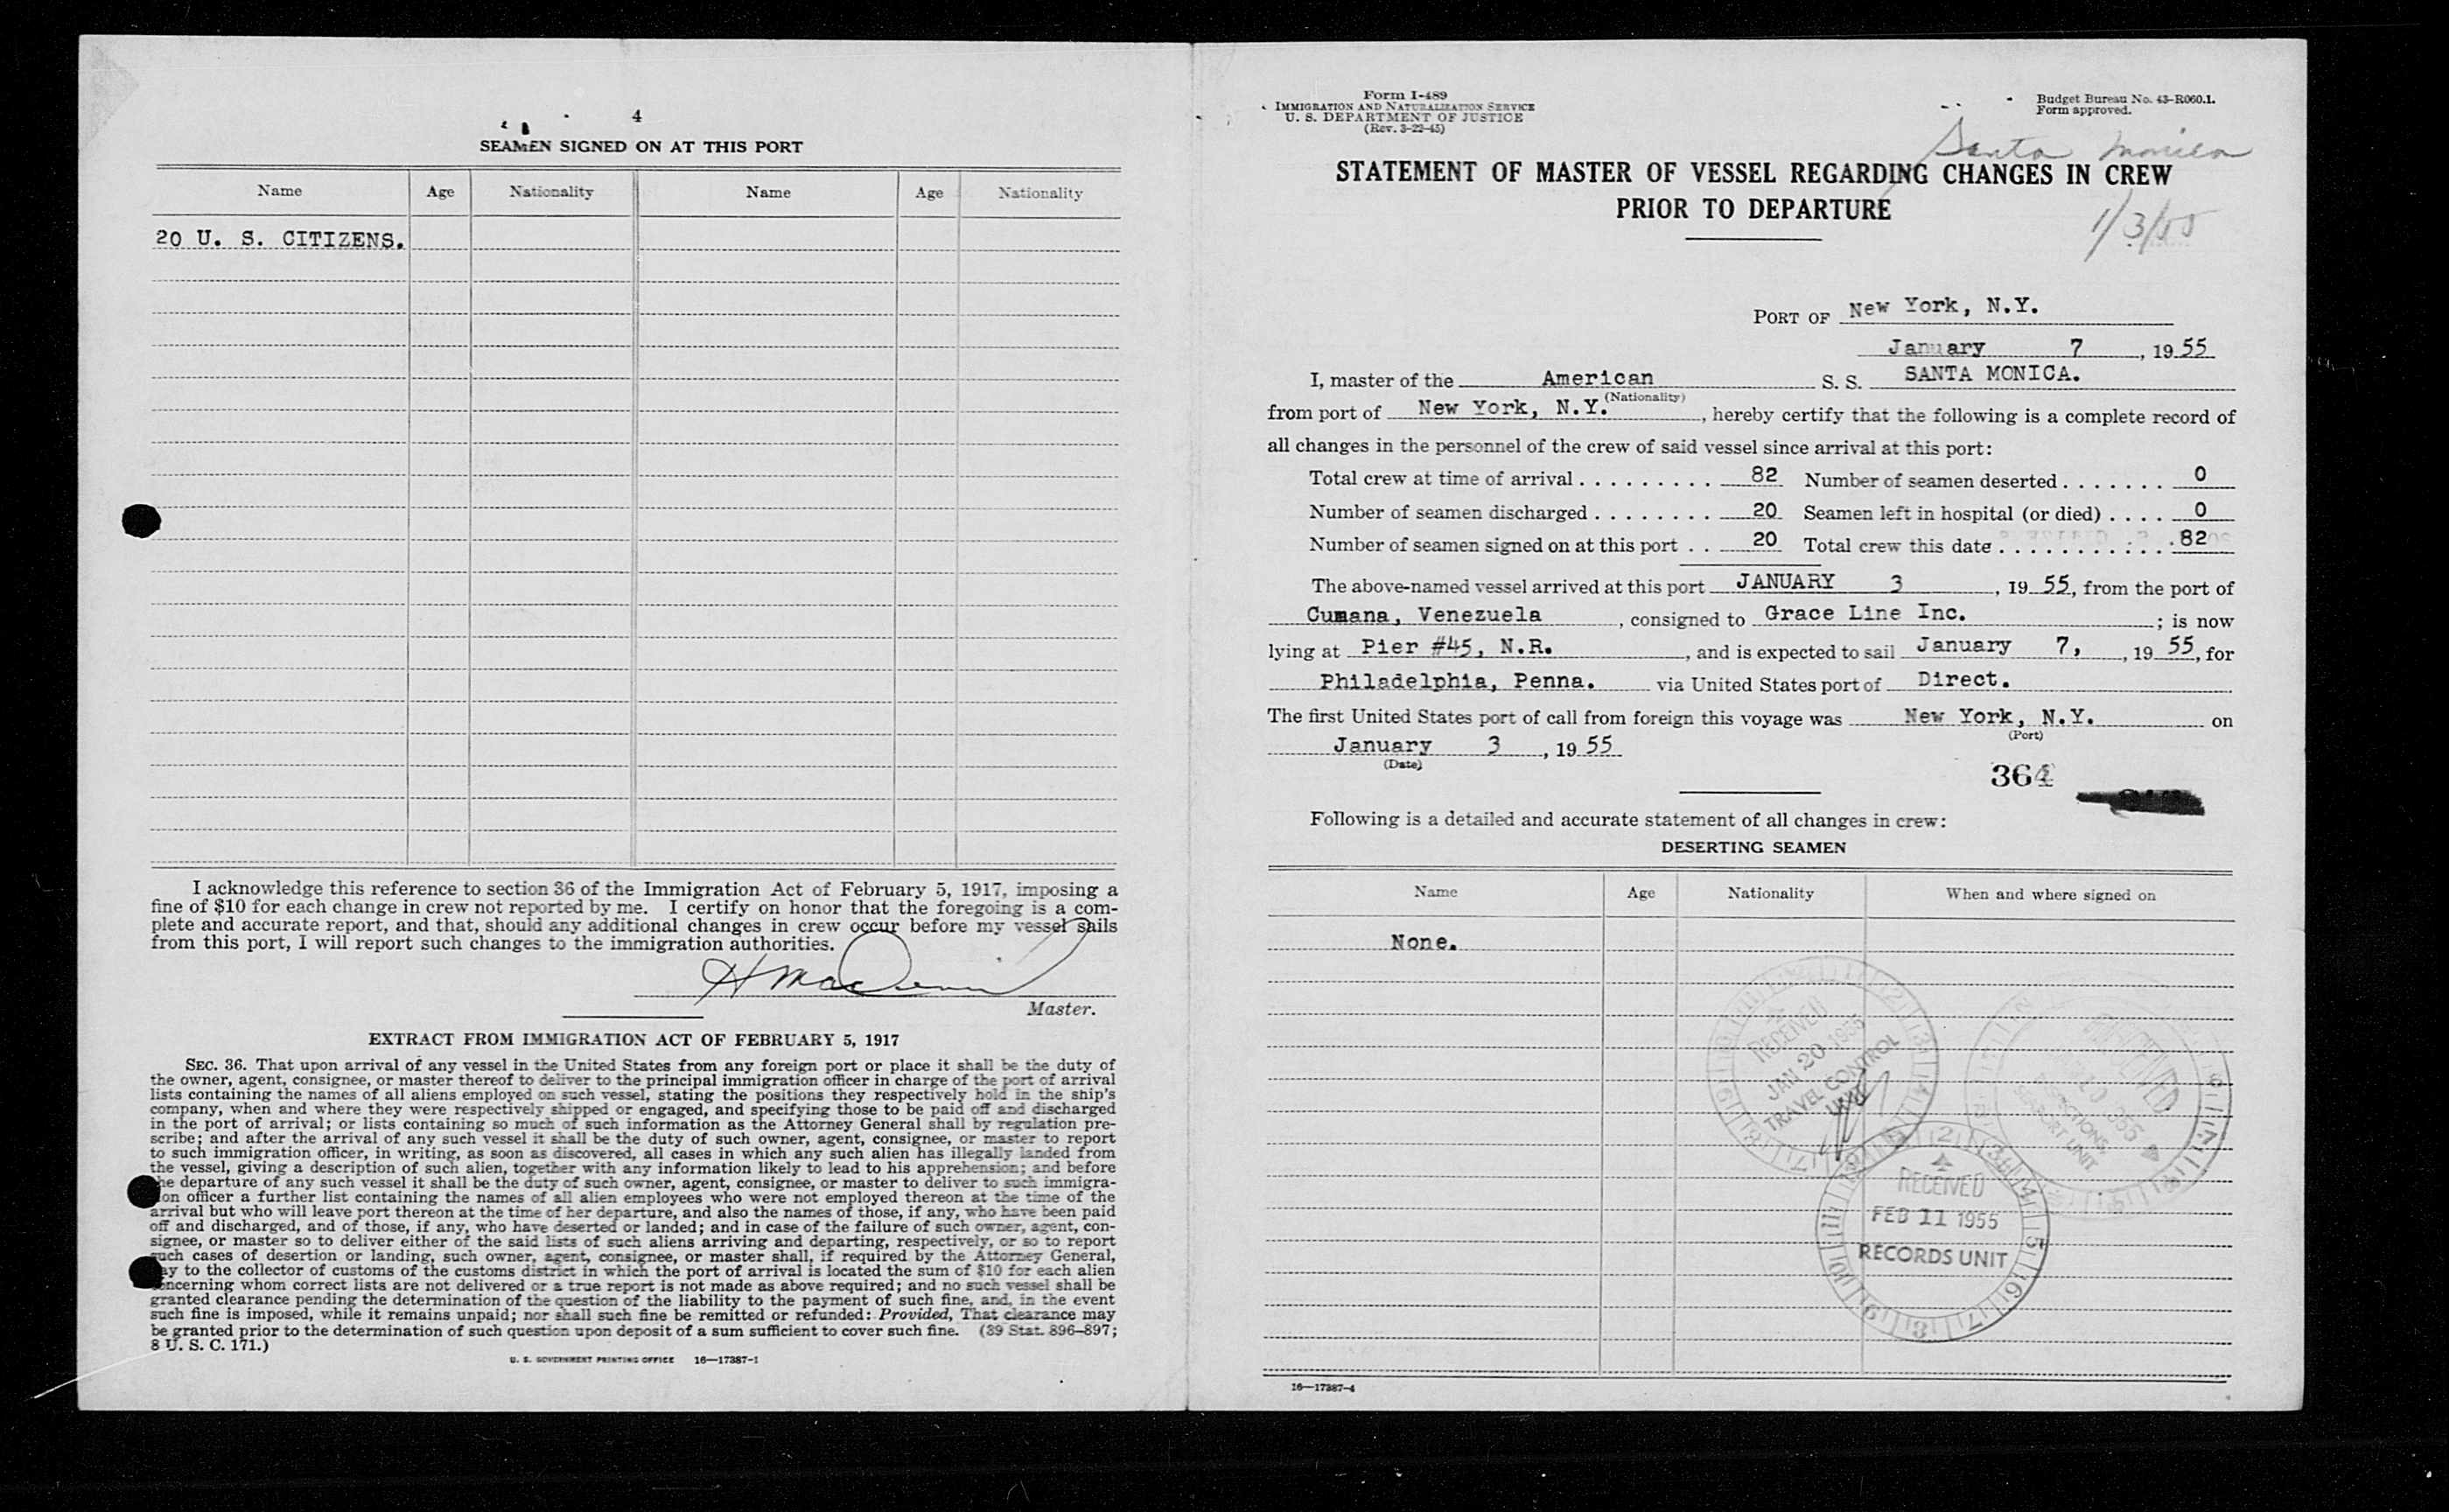 4
SEAMEN SIGNED ON AT THIS PORT
Name Age Nationality Name Age Nationality
20 U. S. CITIZENS.
I acknowledge this reference to section 36 of the Immigration Act of February 5, 1917, imposing a
fine of $10 for each change in crew not reported by me. I certify on honor that the foregoing is a com-
plete and accurate report, and that, should any additional changes in crew occur before my vessel sails
from this port, I will report such changes to the immigration authorities.
Master.
EXTRACT FROM IMMIGRATION ACT OF FEBRUARY 5, 1917
SEC. 36. That upon arrival of any vessel in the United States from any foreign port or place it shall be the duty of
the owner, agent, consignee, or master thereof to deliver to the principal immigration officer in charge of the port of arrival
lists containing the names of all aliens employed on such vessel, stating the positions they respectively hold in the ship's
company, when and where they were respectively shipped or engaged, and specifying those to be paid off and discharged
in the port of arrival; or lists containing so much of such information as the Attorney General shall by regulation pre-
scribe; and after the arrival of any such vessel it shall be the duty of such owner, agent, consignee, or master to report
to such immigration officer, in writing, as soon as discovered, all cases in which any such alien has illegally landed from
the vessel, giving a description of such alien, together with any information likely to lead to his apprehension; and before
the departure of any such vessel it shall be the duty of such owner, agent, consignee, or master to deliver to such immigra-
tion officer a further list containing the names of all alien employees who were not employed thereon at the time of the
arrival but who will leave port thereon at the time of her departure, and also the names of those, if any, who have been paid
off and discharged, and of those, if any, who have deserted or landed; and in case of the failure of such owner, agent, con-
signee, or master so to deliver either of the said lists of such aliens arriving and departing, respectively, or so to report
such cases of desertion or landing, such owner, agent, consignee, or master shall, if required by the Attorney General,
pay to the collector of customs of the customs district in which the port of arrival is located the sum of $10 for each alien
concerning whom correct lists are not delivered or a true report is not made as above required; and no such vessel shall be
granted clearance pending the determination of the question of the liability to the payment of such fine, and, in the event
such fine is imposed, while it remains unpaid; nor shall such fine be remitted or refunded: Provided, That clearance may
be granted prior to the determination of such question upon deposit of a sum sufficient to cover such fine. (39 Stat. 896–897;
8 U. S. C. 171.)
U. S. GOVERNMENT PRINTING OFFICE 16—17387-1
Form I-489
IMMIGRATION AND NATURALIZATION SERVICE
U. S. DEPARTMENT OF JUSTICE
(Rev. 3-22-45)
Budget Bureau No. 43-R060.1.
Form approved.
Santa Monica
STATEMENT OF MASTER OF VESSEL REGARDING CHANGES IN CREW
PRIOR TO DEPARTURE
1/3/55
PORT OF New York, N.Y.
January 7, 1955
I, master of the American S. S. SANTA MONICA.
(Nationality)
from port of New York, N.Y., hereby certify that the following is a complete record of
all changes in the personnel of the crew of said vessel since arrival at this port:
Total crew at time of arrival . . . . . . . . . 82 Number of seamen deserted . . . . . . . 0
Number of seamen discharged . . . . . . . . 20 Seamen left in hospital (or died) . . . . 0
Number of seamen signed on at this port . . 20 Total crew this date . . . . . . . . . . . 82
The above-named vessel arrived at this port JANUARY 3, 1955, from the port of
Cumana, Venezuela, consigned to Grace Line Inc.; is now
lying at Pier #45, N.R., and is expected to sail January 7,, 1955, for
Philadelphia, Penna. via United States port of Direct.
The first United States port of call from foreign this voyage was New York, N.Y. on
(Port)
January 3, 1955
(Date)
Following is a detailed and accurate statement of all changes in crew:
DESERTING SEAMEN
Name Age Nationality When and where signed on
None.
RECEIVED
JAN 20 1955
TRAVEL CONTROL
UNIT
RECEIVED
RECEIVED
FEB 11 1955
RECORDS UNIT
16—17387-4